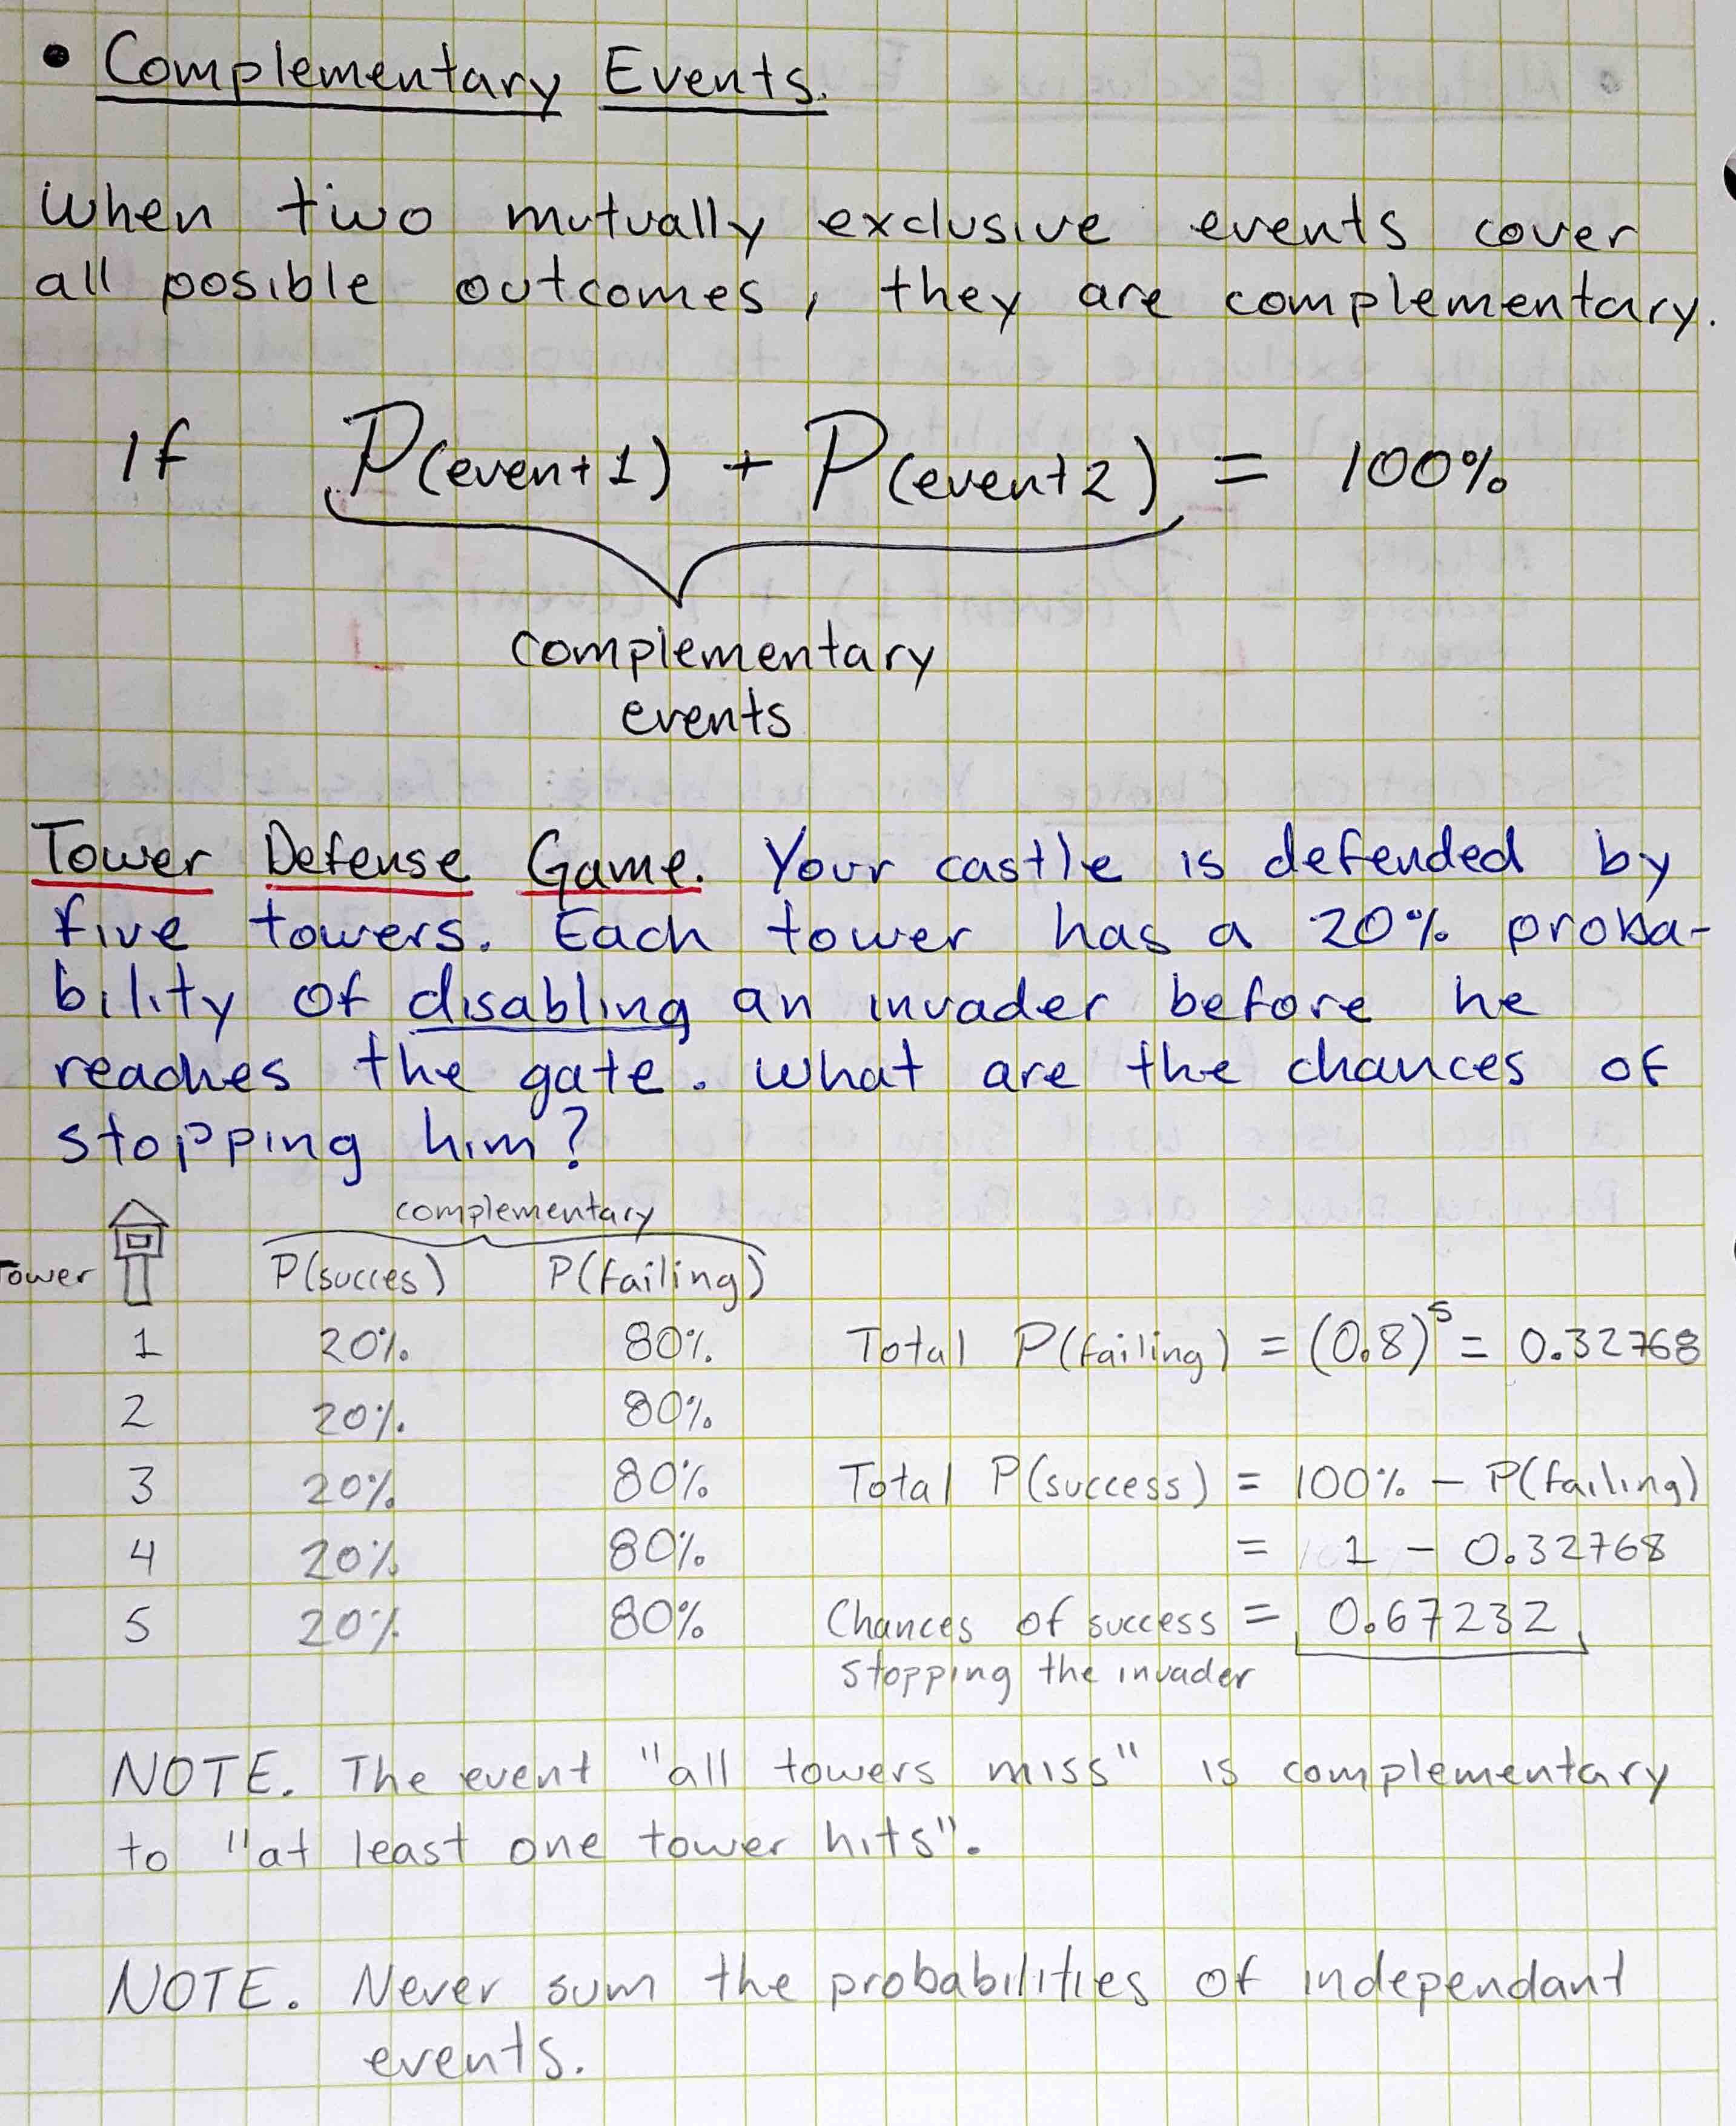 • Complementary Events.
When two mutually exclusive events cover
all posible outcomes, they are complementary.
If P(event 1) + P(event 2) = 100%
complementary
events
Tower Defense Game. Your castle is defended by
five towers. Each tower has a 20% proba-
bility of disabling an invader before he
reaches the gate. What are the chances of
stopping him?
complementary
Tower P(succes) P(failing)
1 20% 80% Total P(failing) = (0.8)^5 = 0.32768
2 20% 80%
3 20% 80% Total P(success) = 100% - P(failing)
4 20% 80% = 1 - 0.32768
5 20% 80% Chances of success = 0.67232
stopping the invader
NOTE. The event "all towers miss" is complementary
to "at least one tower hits".
NOTE. Never sum the probabilities of independant
events.